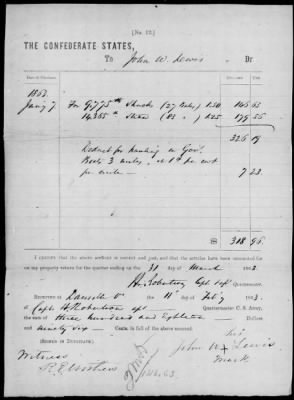 [No. 12.]
THE CONFEDERATE STATES,
To John W. Lewis Dr
Date of Purchase. Dollars Cents
1863
Jany 7 For 9,775 lbs Shucks (27 Bales) 1.50 146 63
14,365 " Straw (83 " ) 1.25 179 56
326 19
Deduct for hauling on Govt
Boats 3 miles, at 1¢ per cwt
per mile — 7 23
318 96
I CERTIFY that the above account is correct and just; and that the articles have been accounted for
on my property return for the quarter ending on the 31 day of March 1863.
H. Robertson Capt Quartermaster.
RECEIVED at Danville Va the 11 day of Feby 1863, of
Capt H. Robertson Quartermaster C. S. Army,
the sum of three hundred and Eighteen Dollars
and ninety six Cents, in full of the above account
(SIGNED IN DUPLICATE.)
his
John W X Lewis
mark
Witness
146.63